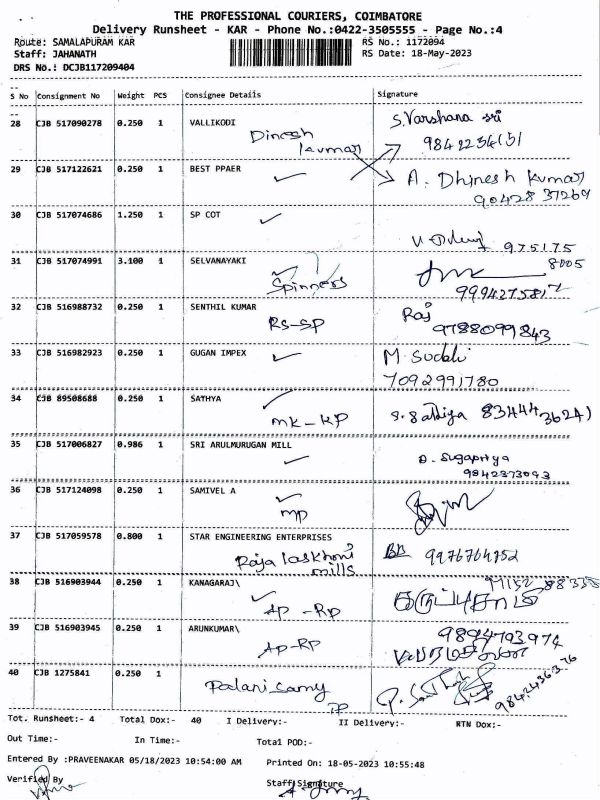 THE PROFESSIONAL COURIERS, COIMBATORE
Delivery Runsheet - KAR - Phone No.:0422-3505555 - Page No.:4
Route: SAMALAPURAM KAR RS No.: 1172094
Staff: JAHANATH RS Date: 18-May-2023
DRS No.: DCJB117209404
S No Consignment No Weight PCS Consignee Details Signature
28 CJB 517090278 0.250 1 VALLIKODI S. Varshana sri
Dinesh kumar
29 CJB 517122621 0.250 1 BEST PPAER A. Dhinesh kumar
90428 37269
30 CJB 517074686 1.250 1 SP COT
975175
8005
31 CJB 517074991 3.100 1 SELVANAYAKI
Spinners
32 CJB 516988732 0.250 1 SENTHIL KUMAR Raj
RS-SP 9788099843
33 CJB 516982923 0.250 1 GUGAN IMPEX M. Sudali
7092991780
34 CJB 89508688 0.250 1 SATHYA
MK-KP
35 CJB 517006827 0.986 1 SRI ARULMURUGAN MILL D. Sugapriya
9842373093
36 CJB 517124098 0.250 1 SAMIVEL A
MP
37 CJB 517059578 0.800 1 STAR ENGINEERING ENTERPRISES
Raja mills 9976764952
38 CJB 516903944 0.250 1 KANAGARAJ\
AP-RP
39 CJB 516903945 0.250 1 ARUNKUMAR\ 9894793974
AP-RP
40 CJB 1275841 0.250 1
Palani samy 9842436376
Tot. Runsheet:- 4 Total Dox:- 40 I Delivery:- II Delivery:- RTN Dox:-
Out Time:- In Time:- Total POD:-
Entered By :PRAVEENAKAR 05/18/2023 10:54:00 AM Printed On: 18-05-2023 10:55:48
Verified By Staff Signature